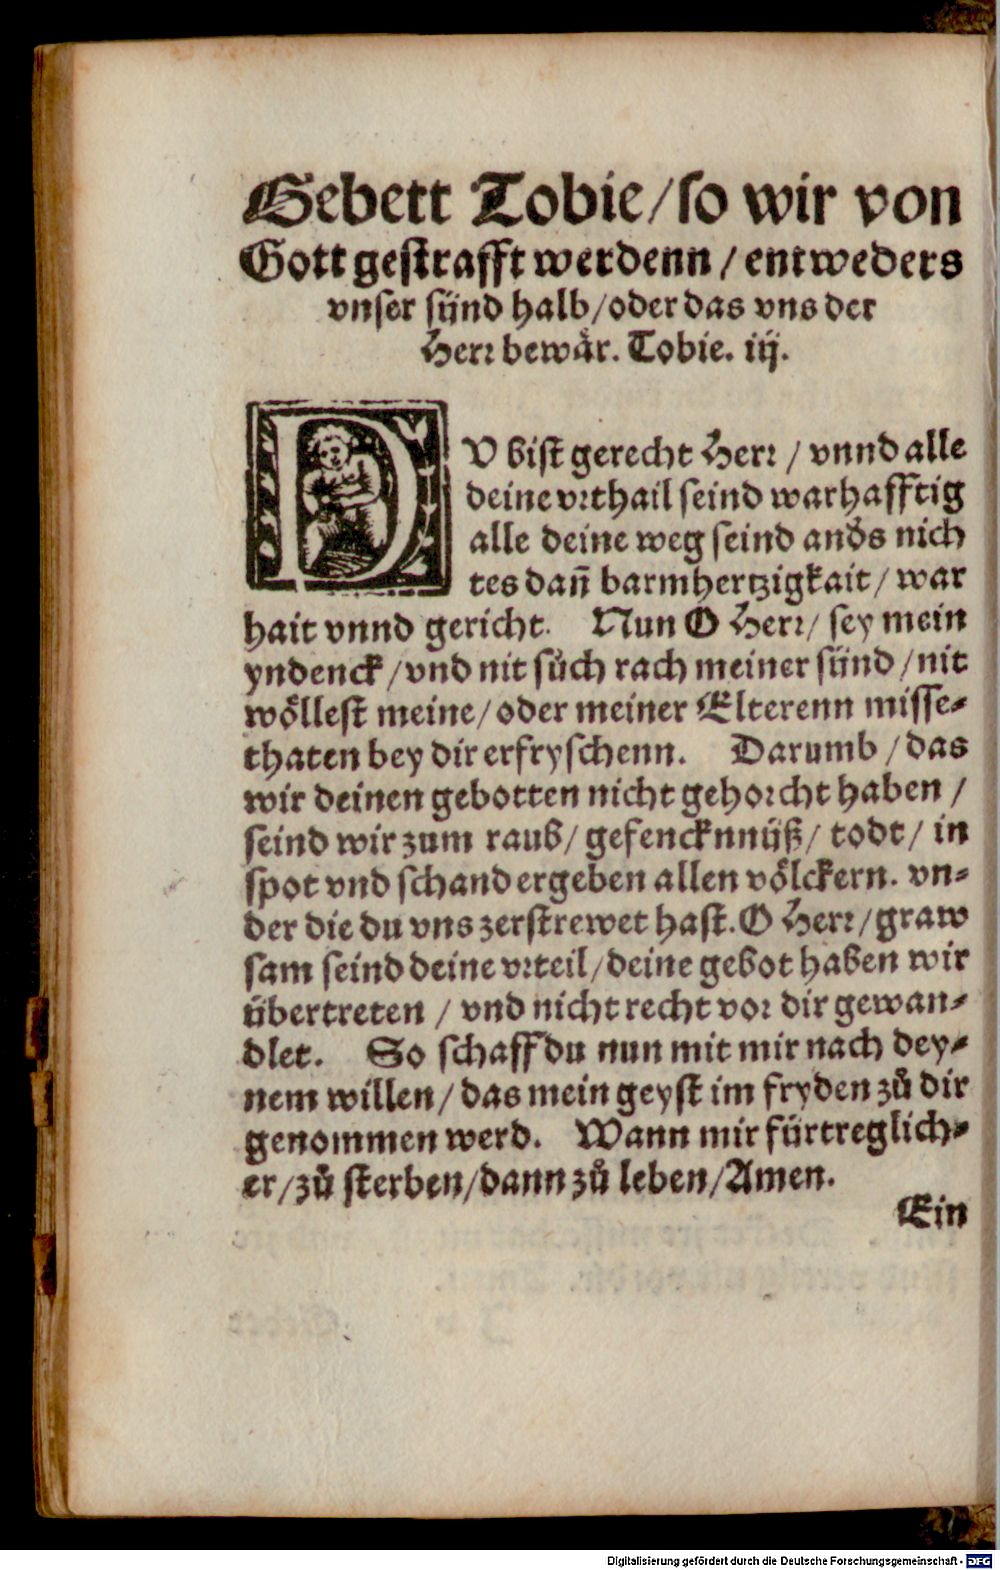 Gebett Tobie/so wir von
Gott gestrafft werdenn/entweders
vnser sünd halb/oder das vns der
Herr bewår. Tobie. iij.
DV bist gerecht Herr/vnnd alle
deine vrthail seind warhafftig
alle deine weg seind anđs nich
tes dañ barmhertzigkait/war
hait vnnd gericht. Nun O Herr/sey mein
yndenck/vnd nit sůch rach meiner sünd/nit
wöllest meine/oder meiner Elterenn misse-
thaten bey dir erfryschenn. Darumb/das
wir deinen gebotten nicht gehorcht haben/
seind wir zum raub/gefencknnüß/todt/in
spot vnd schand ergeben allen völckern. vn-
der die du vns zerstrewet hast. O Herr/graw
sam seind deine vrteil/deine gebot haben wir
übertreten/vnd nicht recht vor dir gewan-
dlet. So schaff du nun mit mir nach dey-
nem willen/das mein geyst im fryden zů dir
genommen werd. Wann mir fürtreglich-
er/zů sterben/dann zů leben/Amen.
Ein
Digitalisierung gefördert durch die Deutsche Forschungsgemeinschaft - DFG